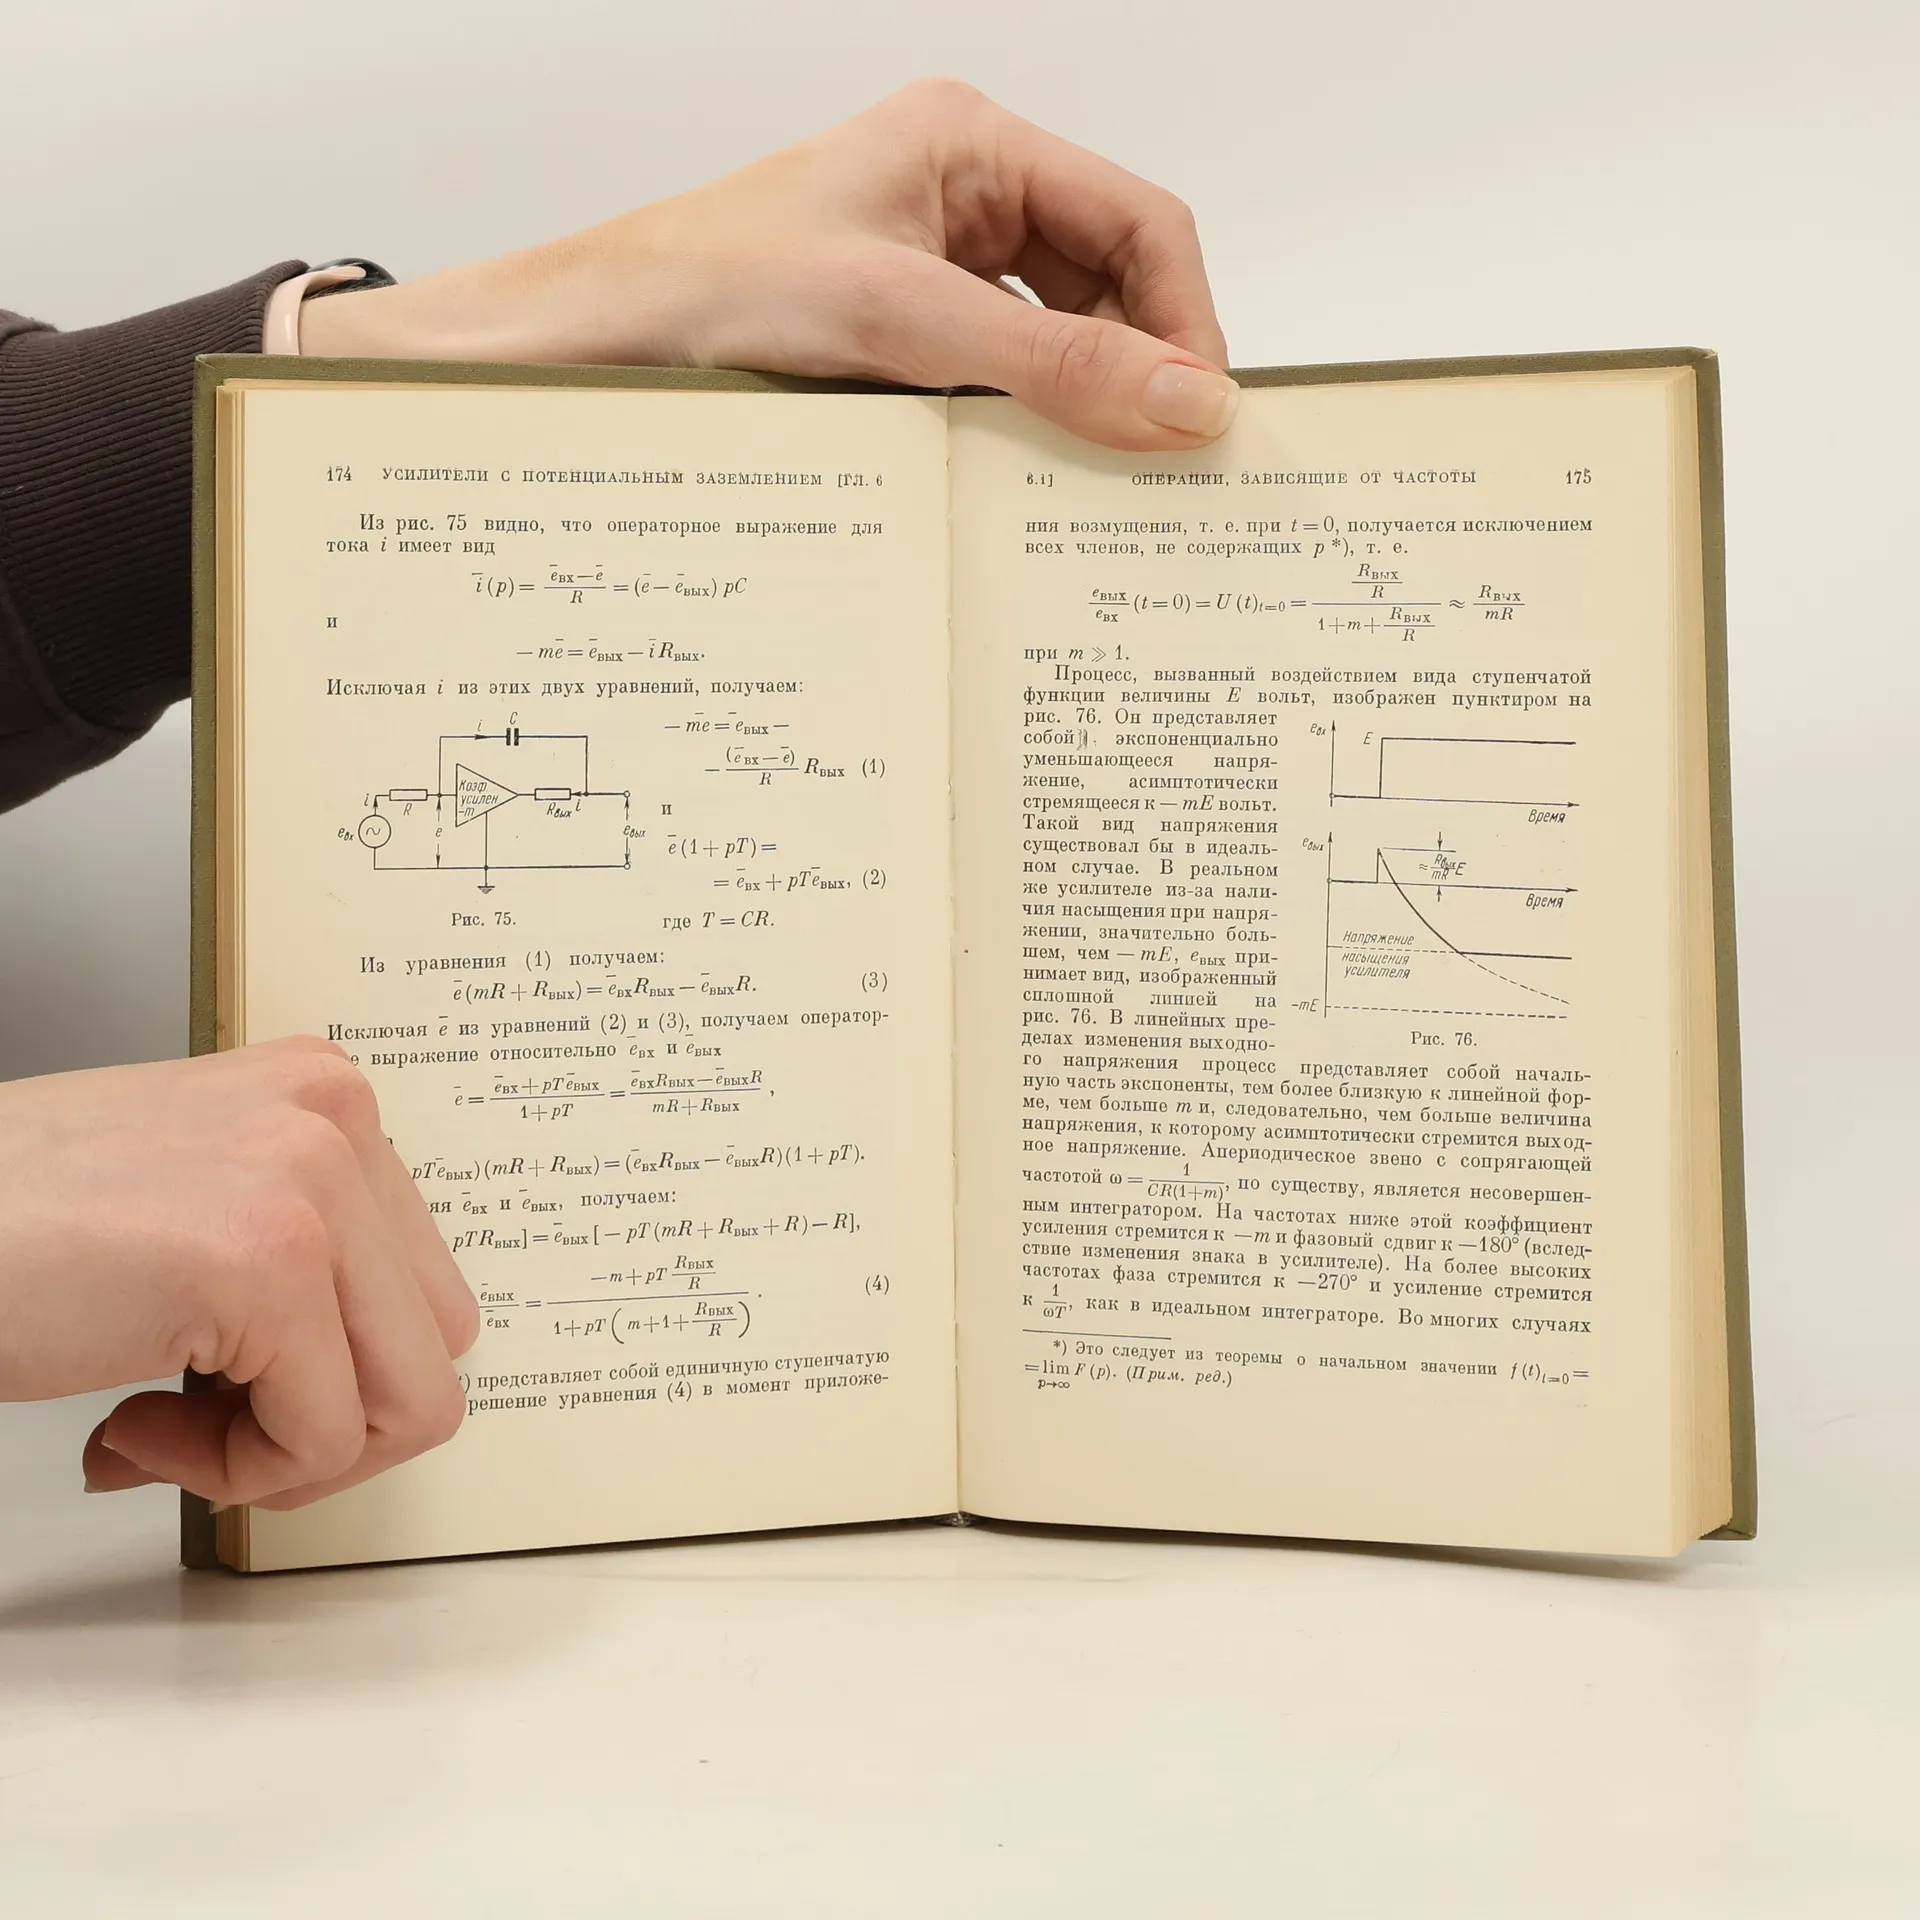 174 УСИЛИТЕЛИ С ПОТЕНЦИАЛЬНЫМ ЗАЗЕМЛЕНИЕМ [ГЛ. 6
Из рис. 75 видно, что операторное выражение для
тока i имеет вид
ī(p) = (ēвх − ē)/R = (ē − ēвых) pC
и
− mē = ēвых − īRвых.
Исключая i из этих двух уравнений, получаем:
− mē = ēвых −
− (ēвх − ē)/R Rвых (1)
и
ē(1 + pT) =
= ēвх + pTēвых, (2)
где T = CR.
i
C
i
R
eвх
e
Коэф.
усилен
−m
Rвых
i
eвых
Рис. 75.
Из уравнения (1) получаем:
ē(mR + Rвых) = ēвхRвых − ēвыхR. (3)
Исключая ē из уравнений (2) и (3), получаем оператор-
е выражение относительно ēвх и ēвых
ē = (ēвх + pTēвых)/(1 + pT) = (ēвхRвых − ēвыхR)/(mR + Rвых),
pTēвых)(mR + Rвых) = (ēвхRвых − ēвыхR)(1 + pT).
яя ēвх и ēвых, получаем:
pTRвых] = ēвых [− pT (mR + Rвых + R) − R],
ēвых/ēвх = (−m + pT Rвых/R)/(1 + pT (m + 1 + Rвых/R)). (4)
) представляет собой единичную ступенчатую
решение уравнения (4) в момент приложе-
6.1] ОПЕРАЦИИ, ЗАВИСЯЩИЕ ОТ ЧАСТОТЫ 175
ния возмущения, т. е. при t = 0, получается исключением
всех членов, не содержащих p *), т. е.
eвых/eвх (t = 0) = U (t)t=0 = (Rвых/R)/(1 + m + Rвых/R) ≈ Rвых/mR
при m ≫ 1.
Процесс, вызванный воздействием вида ступенчатой
функции величины E вольт, изображен пунктиром на
рис. 76. Он представляет
собой экспоненциально
уменьшающееся напря-
жение, асимптотически
стремящееся к — mE вольт.
Такой вид напряжения
существовал бы в идеаль-
ном случае. В реальном
же усилителе из-за нали-
чия насыщения при напря-
жении, значительно боль-
шем, чем — mE, eвых при-
нимает вид, изображенный
сплошной линией на
рис. 76. В линейных пре-
делах изменения выходно-
го напряжения процесс представляет собой началь-
eвх
E
Время
eвых
≈ Rвых/mR E
Время
Напряжение
насыщения
усилителя
−mE
Рис. 76.
ную часть экспоненты, тем более близкую к линейной фор-
ме, чем больше m и, следовательно, чем больше величина
напряжения, к которому асимптотически стремится выход-
ное напряжение. Апериодическое звено с сопрягающей
частотой ω = 1/CR(1+m), по существу, является несовершен-
ным интегратором. На частотах ниже этой коэффициент
усиления стремится к —m и фазовый сдвиг к —180° (вслед-
ствие изменения знака в усилителе). На более высоких
частотах фаза стремится к —270° и усиление стремится
к 1/ωT, как в идеальном интеграторе. Во многих случаях
*) Это следует из теоремы о начальном значении f (t)t=0 =
= lim F (p). (Прим. ред.)
p→∞